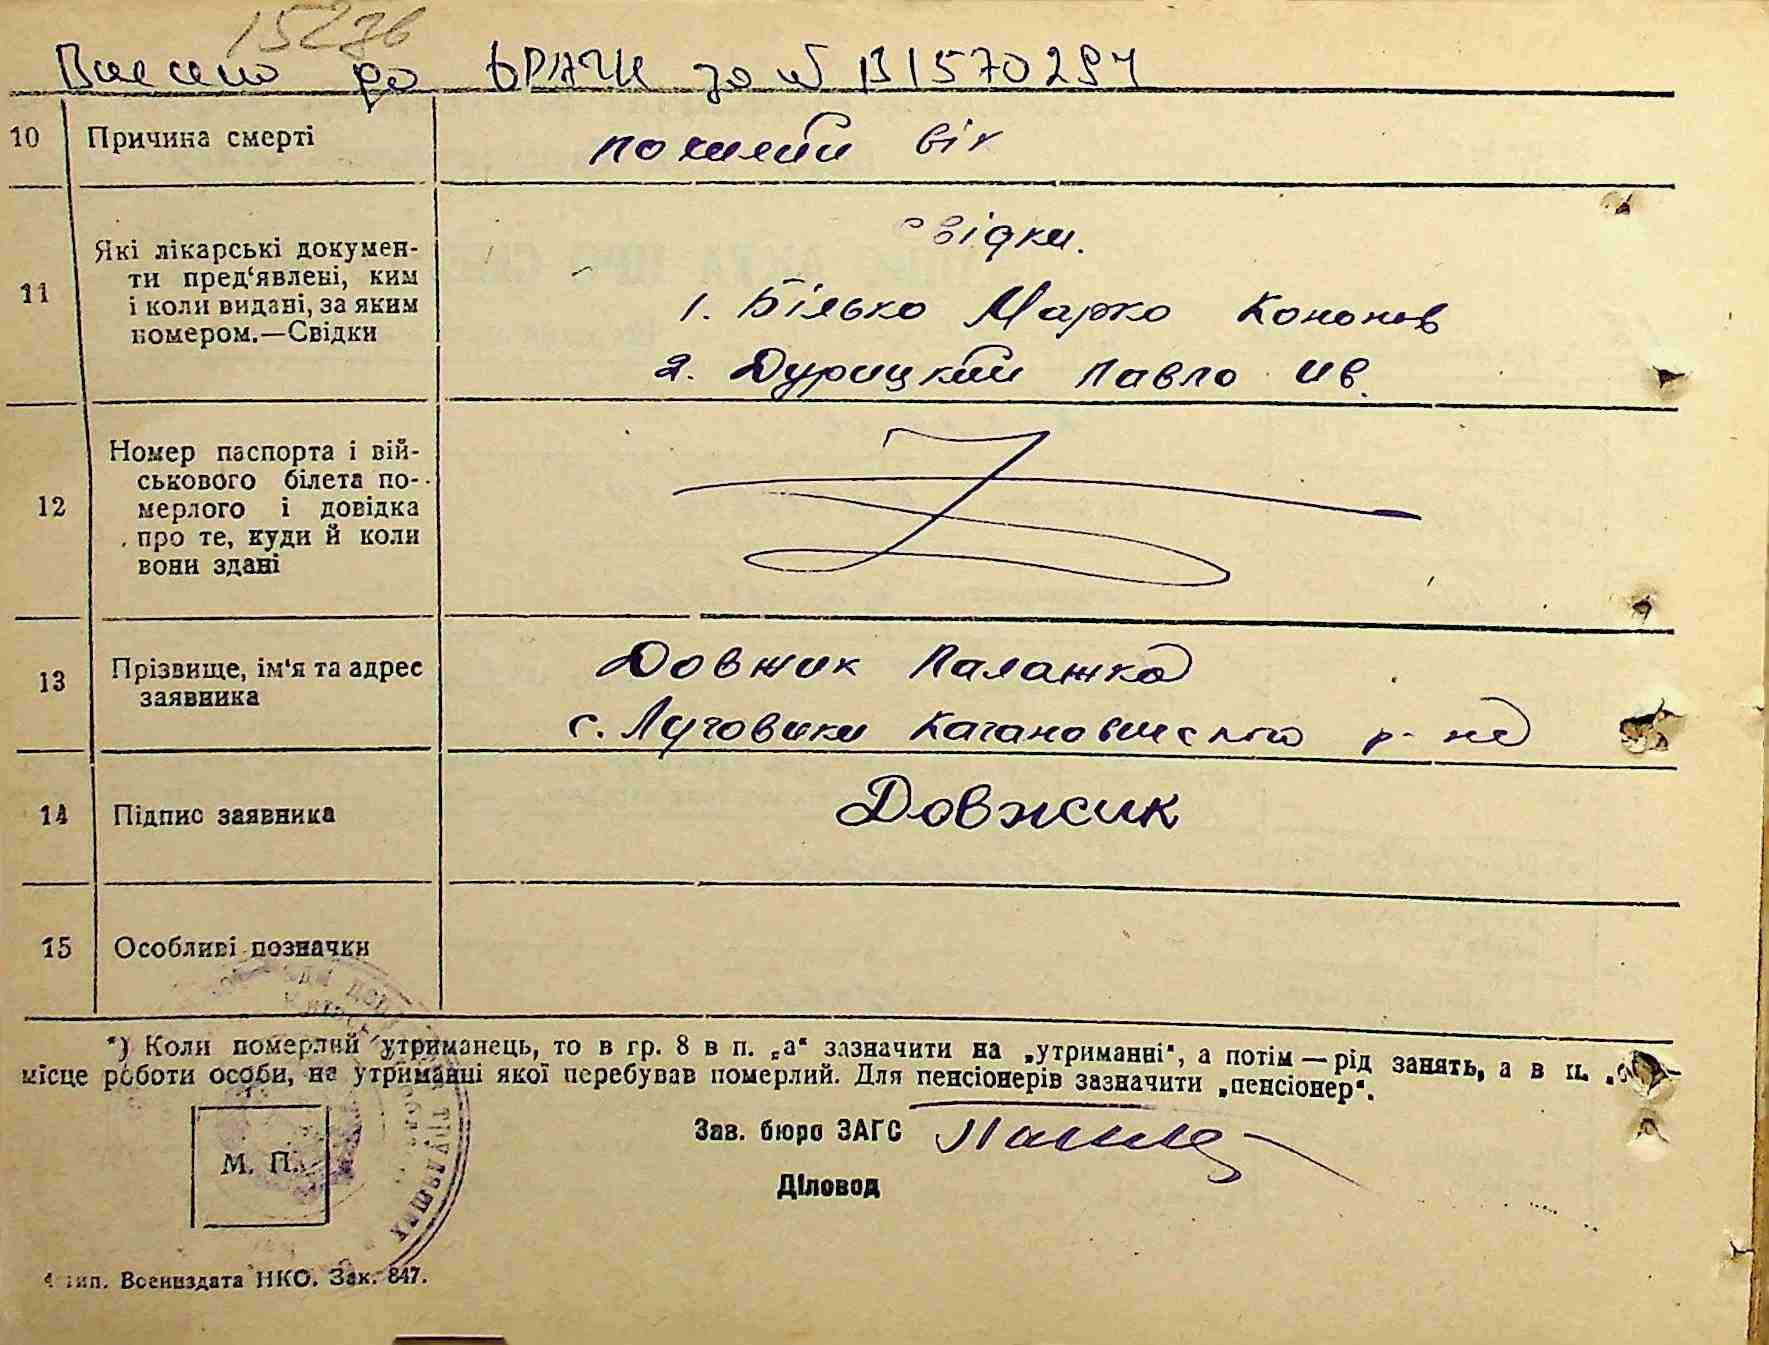 15276
Внесено до ДРАЦС за № 131570294
10 Причина смерті
похилий вік
11 Які лікарські докумен-
ти пред‘явлені, ким
і коли видані, за яким
номером.—Свідки
свідки.
1. Білько Марко Кононов
2. Дурицкий Павло Ив.
12 Номер паспорта і вій-
ськового білета по-
мерлого і довідка
про те, куди й коли
вони здані
13 Прізвище, ім‘я та адрес
заявника
Довжик Палажка
с. Луговики Кагановичского р-на
14 Підпис заявника
Довжик
15 Особливі позначки
*) Коли померлий утриманець, то в гр. 8 в п. „а“ зазначити на „утриманні“, а потім — рід занять, а в п.
місце роботи особи, на утриманні якої перебував померлий. Для пенсіонерів зазначити „пенсіонер“.
Зав. бюро ЗАГС
Діловод
М. П.
трудящих
4 тип. Воениздата НКО. Зак. 847.